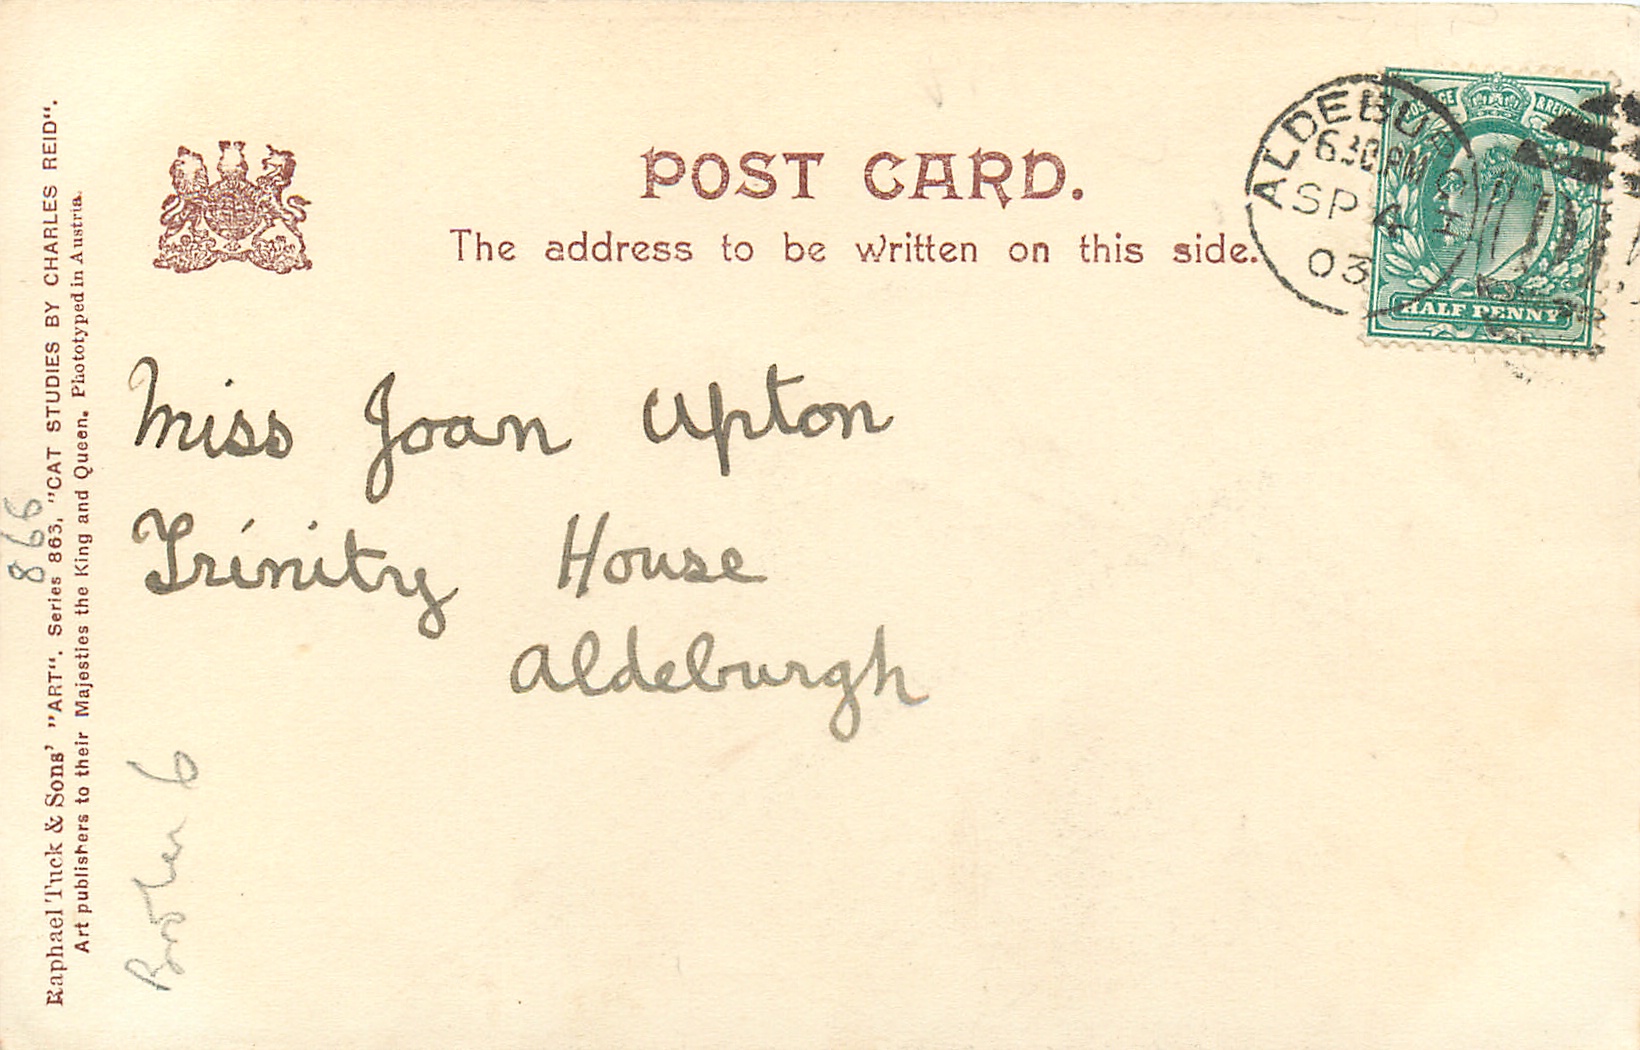 POST CARD.
The address to be written on this side.
ALDEBURGH
6 30 AM
SP 4
03
POSTAGE & REVENUE
HALF PENNY
Miss Joan Upton
Trinity House
Aldeburgh
Raphael Tuck & Sons' "ART". Series 863, "CAT STUDIES BY CHARLES REID".
Art publishers to their Majesties the King and Queen. Phototyped in Austria.
866
6